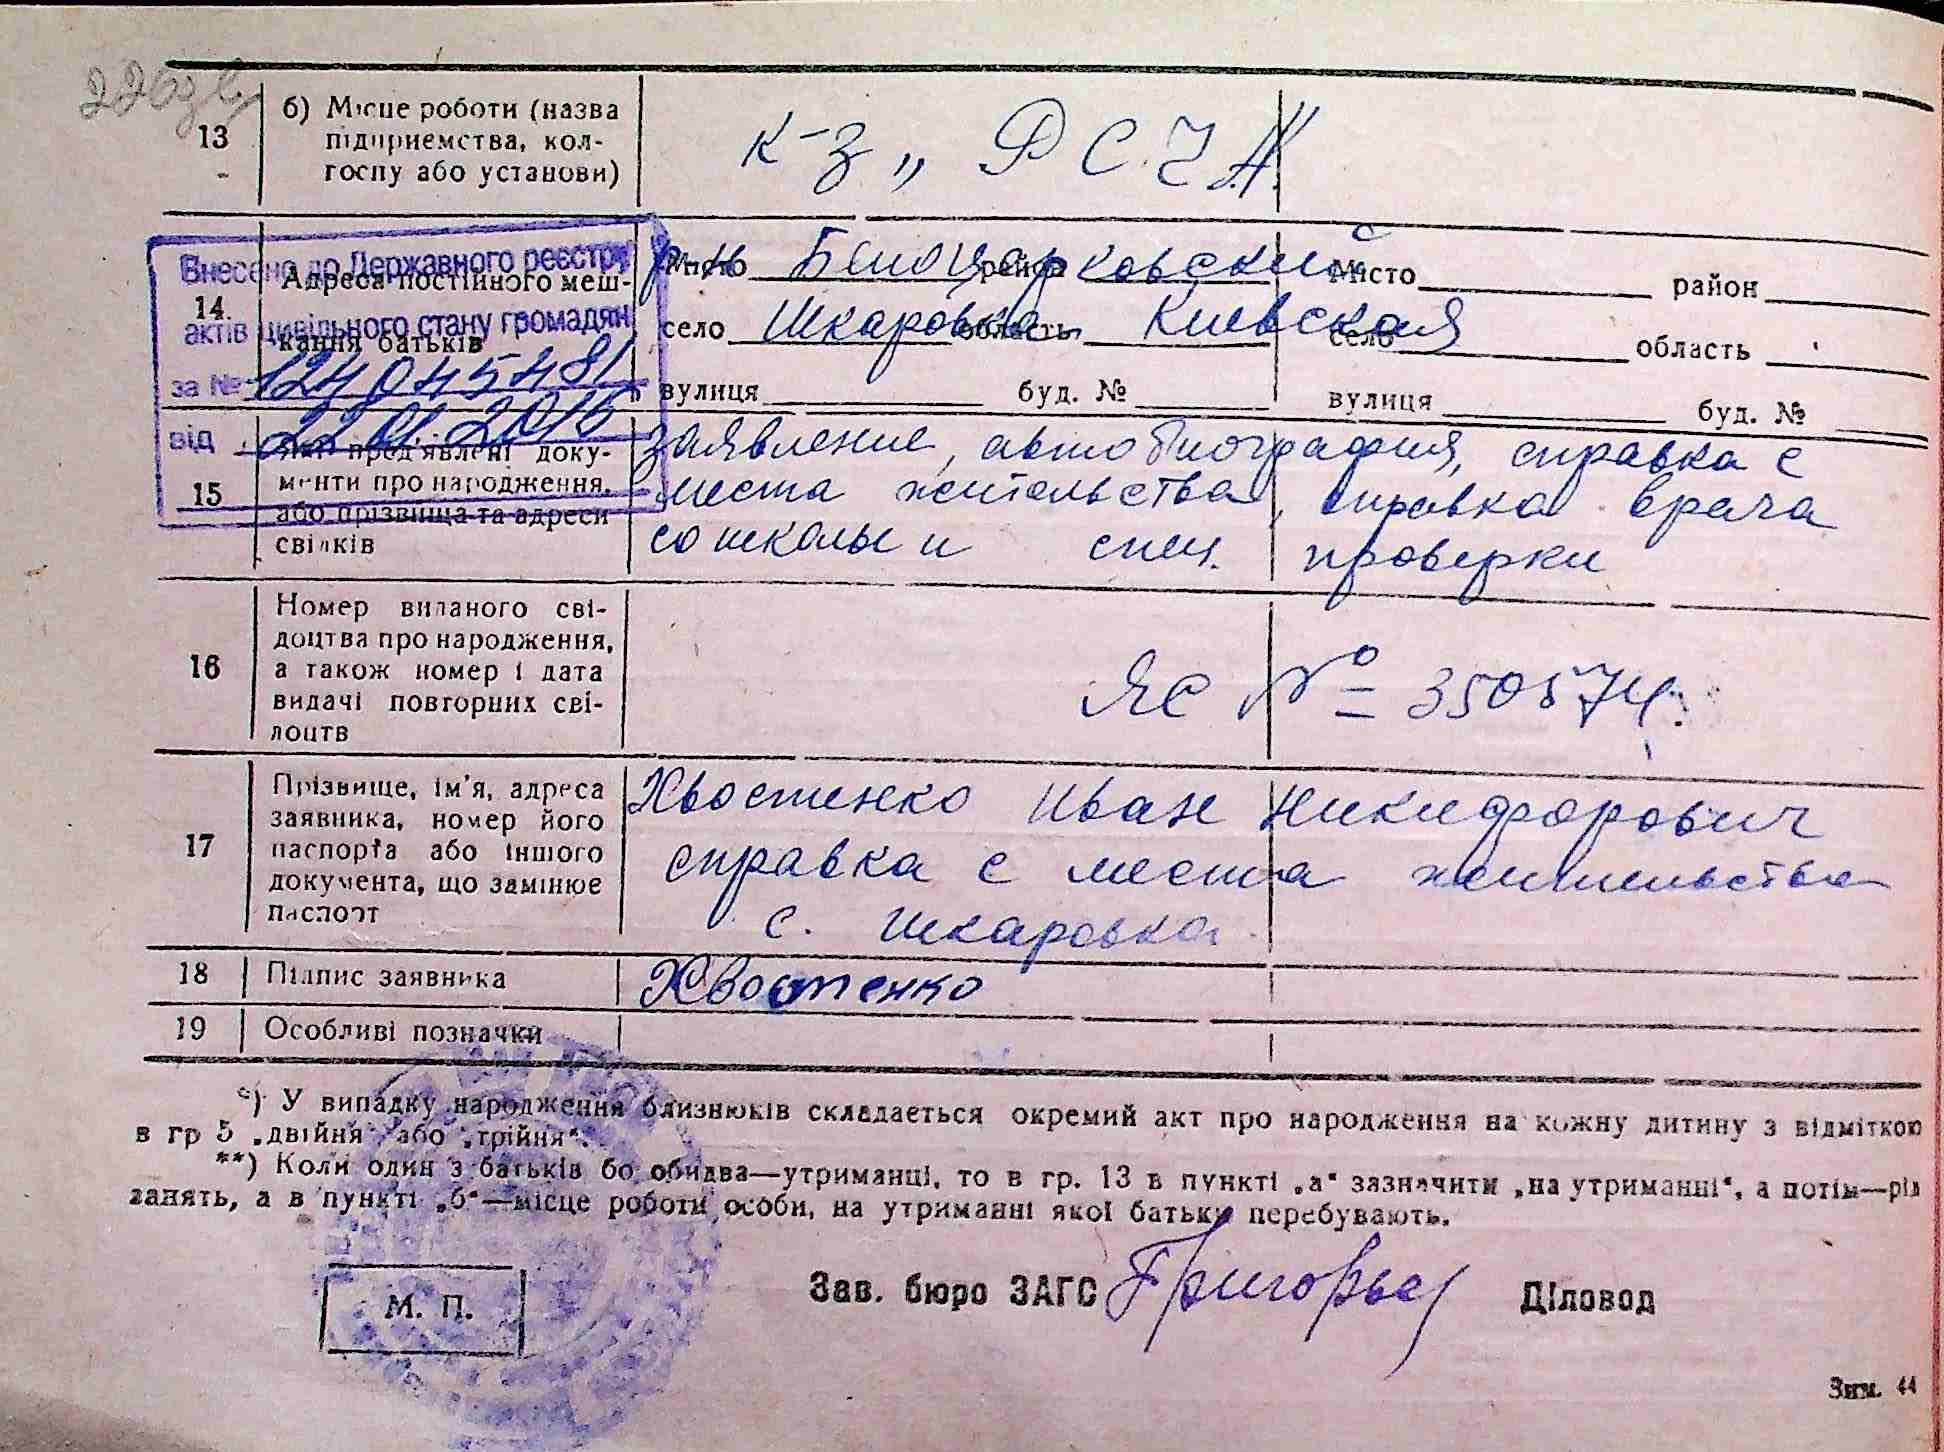 13
б) Місце роботи (назва
підприємства, кол-
госпу або установи)
к-з „ Р С Ч А
Внесено до Державного реєстру
актів цивільного стану громадян
за №
від 22.01.2016
14
Адреса постійного меш-
кання батьків
місто р-н Белоцерковский район
село Шкаровка область Киевская
вулиця буд. №
місто район
село область
вулиця буд. №
15
Які пред'явлені доку-
менти про народження,
або прізвища та адреси
свідків
заявление, автобиография, справка с
места жительства, справка врача
со школы и спец. проверки
16
Номер виданого сві-
доцтва про народження,
а також номер і дата
видачі повторних сві-
доцтв
ЯС № 350574
17
Прізвище, ім'я, адреса
заявника, номер його
паспорта або іншого
документа, що замінює
паспорт
Хвостенко Иван Никифорович
справка с места жительства
с. Шкаровка
18
Підпис заявника
Хвостенко
19
Особливі позначки
*) У випадку народження близнюків складається окремий акт про народження на кожну дитину з відміткою
в гр 5 „двійня“ або „трійня“.
**) Коли один з батьків бо обидва—утриманці, то в гр. 13 в пункті „а“ зазначити „на утриманні“, а потім—рід
занять, а в пункті „б“—місце роботи особи, на утриманні якої батьки перебувають.
М. П.
Зав. бюро ЗАГС
Діловод
Зим. 44